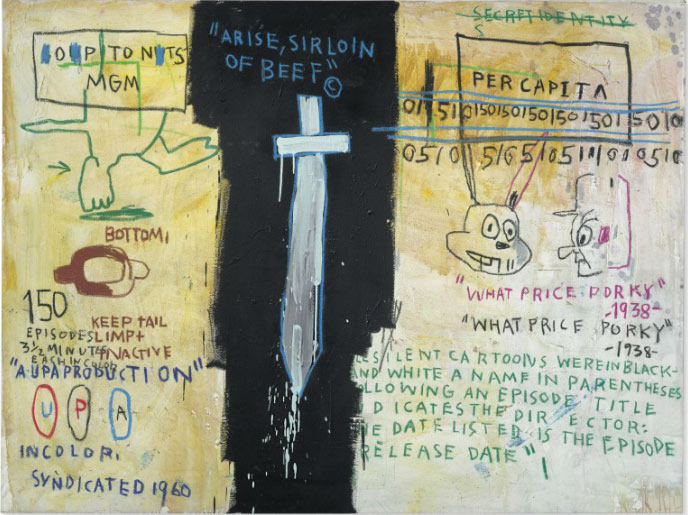 SOUP TO NUTS
MGM
BOTTOM,
150
EPISODES
3 1/2 MINUTE
EACH IN COLOR
KEEP TAIL
LIMP +
INACTIVE
"A UPA PRODUCTION"
U P A
IN COLOR.
SYNDICATED 1960
"ARISE, SIRLOIN
OF BEEF"
©
SECRET IDENTITY
S
PER CAPITA
"WHAT PRICE PORKY"
-1938-
"WHAT PRICE PORKY"
-1938-
ESILENT CARTOONS WERE IN BLACK-
AND WHITE A NAME IN PARENTHESES
OLLOWING AN EPISODE TITLE
DICATES THE DIRECTOR:
E DATE LISTED IS THE EPISODE
RELEASE DATE"